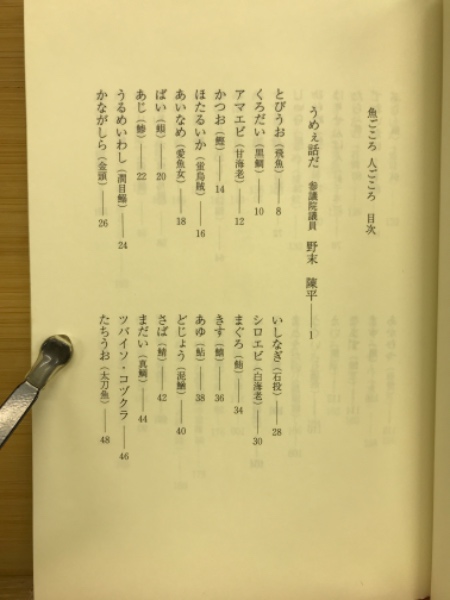 魚ごころ 人ごころ 目次
うめぇ話だ 参議院議員 野末 陳平——1
とびうお（飛魚）——8
くろだい（黒鯛）——10
アマエビ（甘海老）——12
かつお（鰹）——14
ほたるいか（蛍烏賊）——16
あいなめ（愛魚女）——18
ばい（蛽）——20
あじ（鯵）——22
うるめいわし（潤目鰯）——24
かながしら（金頭）——26
いしなぎ（石投）——28
シロエビ（白海老）——30
まぐろ（鮪）——34
きす（鱚）——36
あゆ（鮎）——38
どじょう（泥鰌）——40
さば（鯖）——42
まだい（真鯛）——44
ツバイソ・コヅクラ——46
たちうお（太刀魚）——48